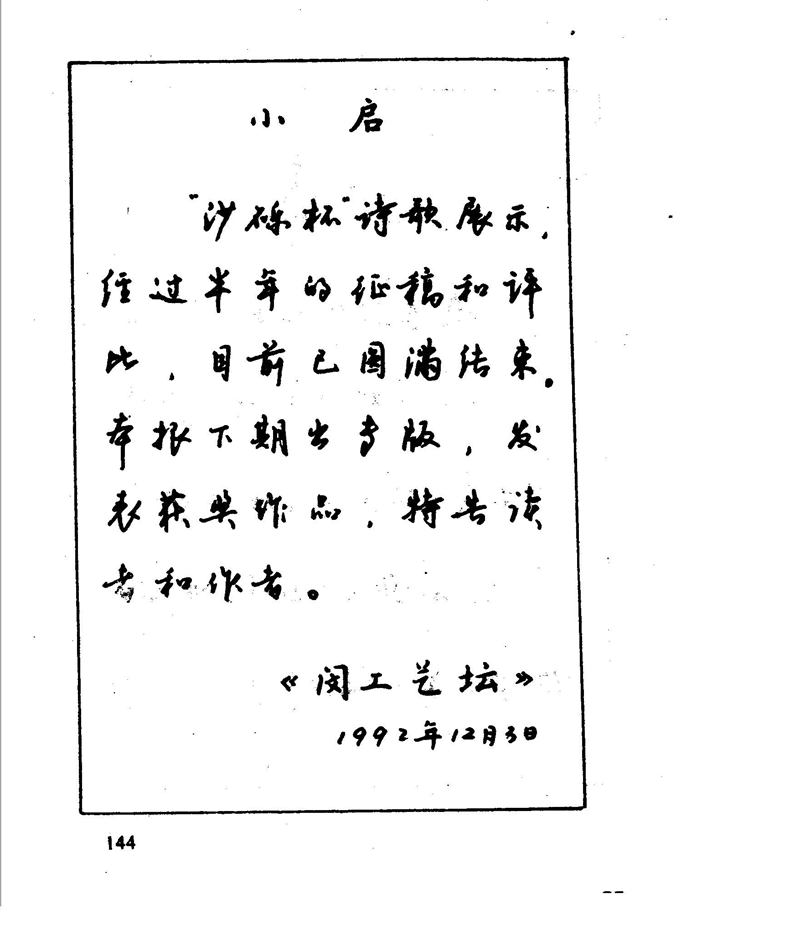 小 启
“沙砾杯”诗歌展示，
经过半年的征稿和评
比，目前已圆满结束。
本报下期出专版，发
表获奖作品，特告读
者和作者。
《闵工艺坛》
1992年12月3日
144